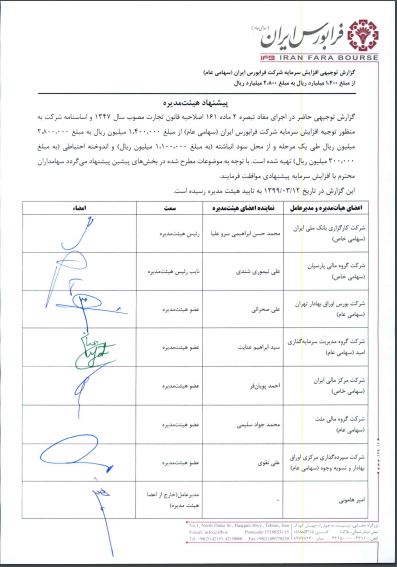 فرابورس ایران
(سهامی عام)
IFB IRAN FARA BOURSE
گزارش توجیهی افزایش سرمایه شرکت فرابورس ایران (سهامی عام)
از مبلغ ۱,۴۰۰ میلیارد ریال به مبلغ ۲,۸۰۰ میلیارد ریال
پیشنهاد هیئت‌مدیره
گزارش توجیهی حاضر در اجرای مفاد تبصره ۲ ماده ۱۶۱ اصلاحیه قانون تجارت مصوب سال ۱۳۴۷ و اساسنامه شرکت به
منظور توجیه افزایش سرمایه شرکت فرابورس ایران (سهامی عام) از مبلغ ۱,۴۰۰,۰۰۰ میلیون ریال به مبلغ ۲,۸۰۰,۰۰۰
میلیون ریال طی یک مرحله و از محل سود انباشته (به مبلغ ۱,۱۰۰,۰۰۰ میلیون ریال) و اندوخته احتیاطی (به مبلغ
۳۰۰,۰۰۰ میلیون ریال) تهیه شده است. با توجه به موضوعات مطرح شده در بخش‌های پیشین پیشنهاد می‌گردد سهامداران
محترم با افزایش سرمایه پیشنهادی موافقت فرمایند.
این گزارش در تاریخ ۱۳۹۹/۰۳/۱۲ به تایید هیئت مدیره رسیده است.
اعضای هیأت‌مدیره و مدیرعامل نماینده اعضای هیئت‌مدیره سمت امضاء
شرکت کارگزاری بانک ملی ایران
(سهامی خاص) محمد حسن ابراهیمی سرو علیا رئیس هیئت‌مدیره
شرکت گروه مالی پارسیان
(سهامی خاص) علی تیموری شندی نایب رئیس هیئت‌مدیره
شرکت بورس اوراق بهادار تهران
(سهامی عام) علی صحرائی عضو هیئت‌مدیره
شرکت گروه مدیریت سرمایه‌گذاری
امید (سهامی عام) سید ابراهیم عنایت عضو هیئت‌مدیره
شرکت مرکز مالی ایران
(سهامی خاص) احمد پویان‌فر عضو هیئت‌مدیره
شرکت گروه مالی ملت
(سهامی عام) محمد جواد سلیمی عضو هیئت‌مدیره
شرکت سپرده‌گذاری مرکزی اوراق
بهادار و تسویه وجوه (سهامی عام) علی نقوی عضو هیئت‌مدیره
امیر هامونی - مدیرعامل(خارج از اعضا
هیئت مدیره)